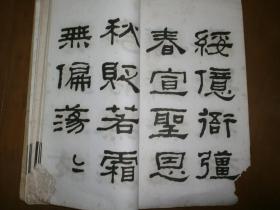 綏億衙彊
春宣聖恩
秋貶若霜
無偏蕩〻